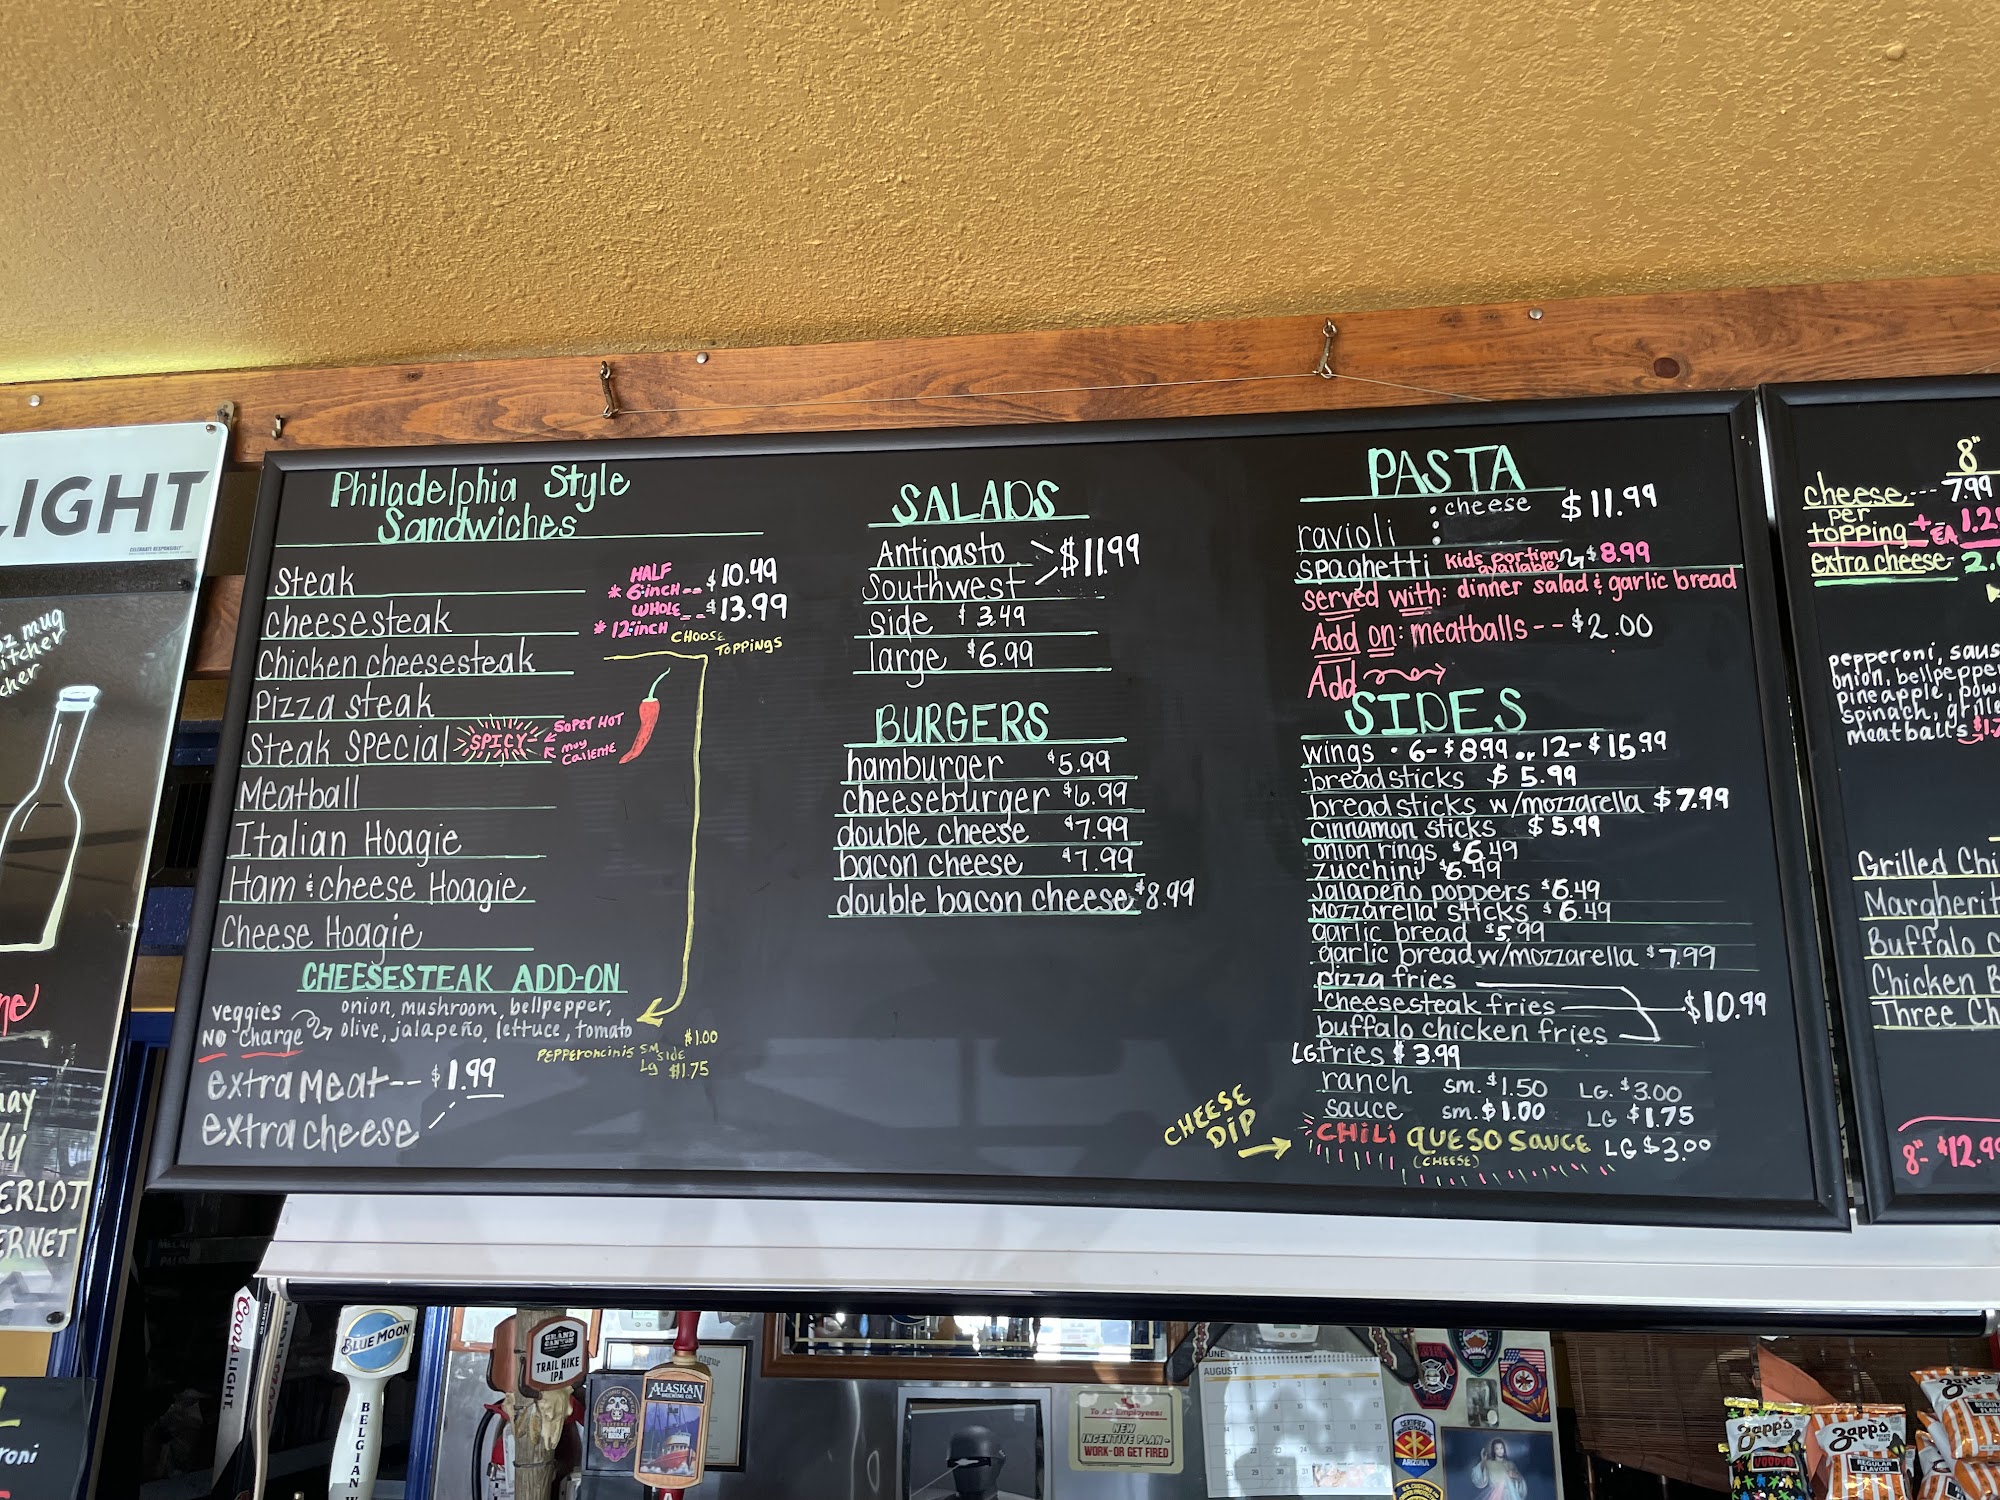 LIGHT
CELEBRATE RESPONSIBLY
oz mug
itcher
cher
ay
dy
ERLOT
ERNET
roni
Philadelphia Style
Sandwiches
Steak
Cheesesteak
Chicken cheesesteak
Pizza steak
Steak Special SPICY SUPER HOT
muy
caliente
Meatball
Italian Hoagie
Ham & cheese Hoagie
Cheese Hoagie
HALF
* 6-inch -- $10.49
WHOLE -- $13.99
* 12-inch
CHOOSE
TOPPINGS
CHEESESTEAK ADD-ON
veggies
NO charge
onion, mushroom, bellpepper,
olive, jalapeño, lettuce, tomato
Pepperoncinis SM SIDE $1.00
Lg $1.75
extra meat -- $1.99
extra cheese
SALADS
Antipasto
Southwest
$11.99
side $3.49
large $6.99
BURGERS
hamburger $5.99
cheeseburger $6.99
double cheese $7.99
bacon cheese $7.99
double bacon cheese $8.99
PASTA
ravioli : cheese $11.99
spaghetti kids portion available $8.99
served with: dinner salad & garlic bread
Add on: meatballs -- $2.00
Add
SIDES
wings · 6- $8.99 or 12- $15.99
breadsticks $5.99
breadsticks w/mozzarella $7.99
cinnamon sticks $5.99
onion rings $6.49
zucchini $6.49
jalapeño poppers $6.49
mozzarella sticks $6.49
garlic bread $5.99
garlic bread w/mozzarella $7.99
pizza fries
cheesesteak fries $10.99
buffalo chicken fries
LG. fries $3.99
ranch sm. $1.50 LG. $3.00
sauce sm. $1.00 LG $1.75
CHEESE
DIP
CHILI QUESO SAUCE LG $3.00
(CHEESE)
8"
cheese --- 7.99
per
topping + EA 1.2
extra cheese - 2.
pepperoni, saus
onion, bellpeppe
pineapple, pow
spinach, grille
meatballs
Grilled Chi
Margherit
Buffalo C
Chicken B
Three Ch
8"- $12.99
Coors LIGHT
BLUE MOON
BELGIAN W
GRAND CANYON
TRAIL HIKE
IPA
ALASKAN
BREWING CO.
To All Employees:
NEW
INCENTIVE PLAN -
WORK-OR GET FIRED
JUNE
AUGUST
YUMA
CERTIFIED
ARIZONA
Zapp's
VOODOO
Zapp's
REGULAR
FLAVOR
Zapp's